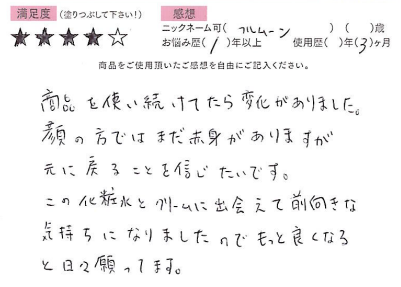 満足度（塗りつぶして下さい！） 感想
★★★★☆ ニックネーム可（フルムーン）（ ）歳
お悩み歴（1）年以上 使用歴（ ）年（3）ヶ月
商品をご使用頂いたご感想を自由にご記入ください。
商品を使い続けてたら変化がありました。
顔の方ではまだ赤身がありますが
元に戻ることを信じたいです。
この化粧水とクリームに出会えて前向きな
気持ちになりましたのでもっと良くなる
と日々願ってます。